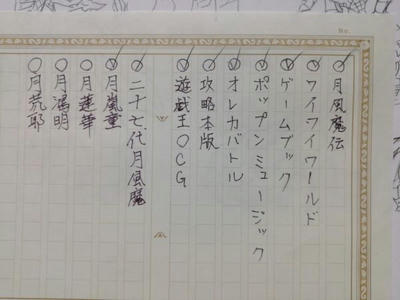 No.
○月風魔伝
○ワイワイワールド
○ゲームブック
○ポップンミュージック
○オレカバトル
○攻略本版
○遊戯王OCG
○二十七代月風魔
○月嵐童
○月蓮華
○月濤明
○月荒耶